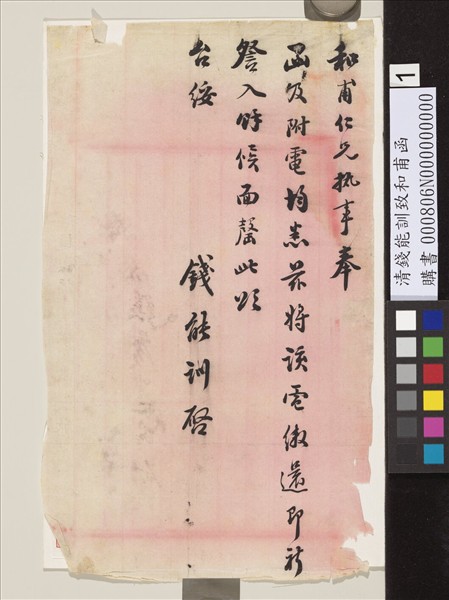 和甫仁兄執事奉
函及附電均悉茲將該電繳還即祈
詧入時候面罄此頌
台綏
錢能訓啓
1
清錢能訓致和甫函
購書 000806N000000000